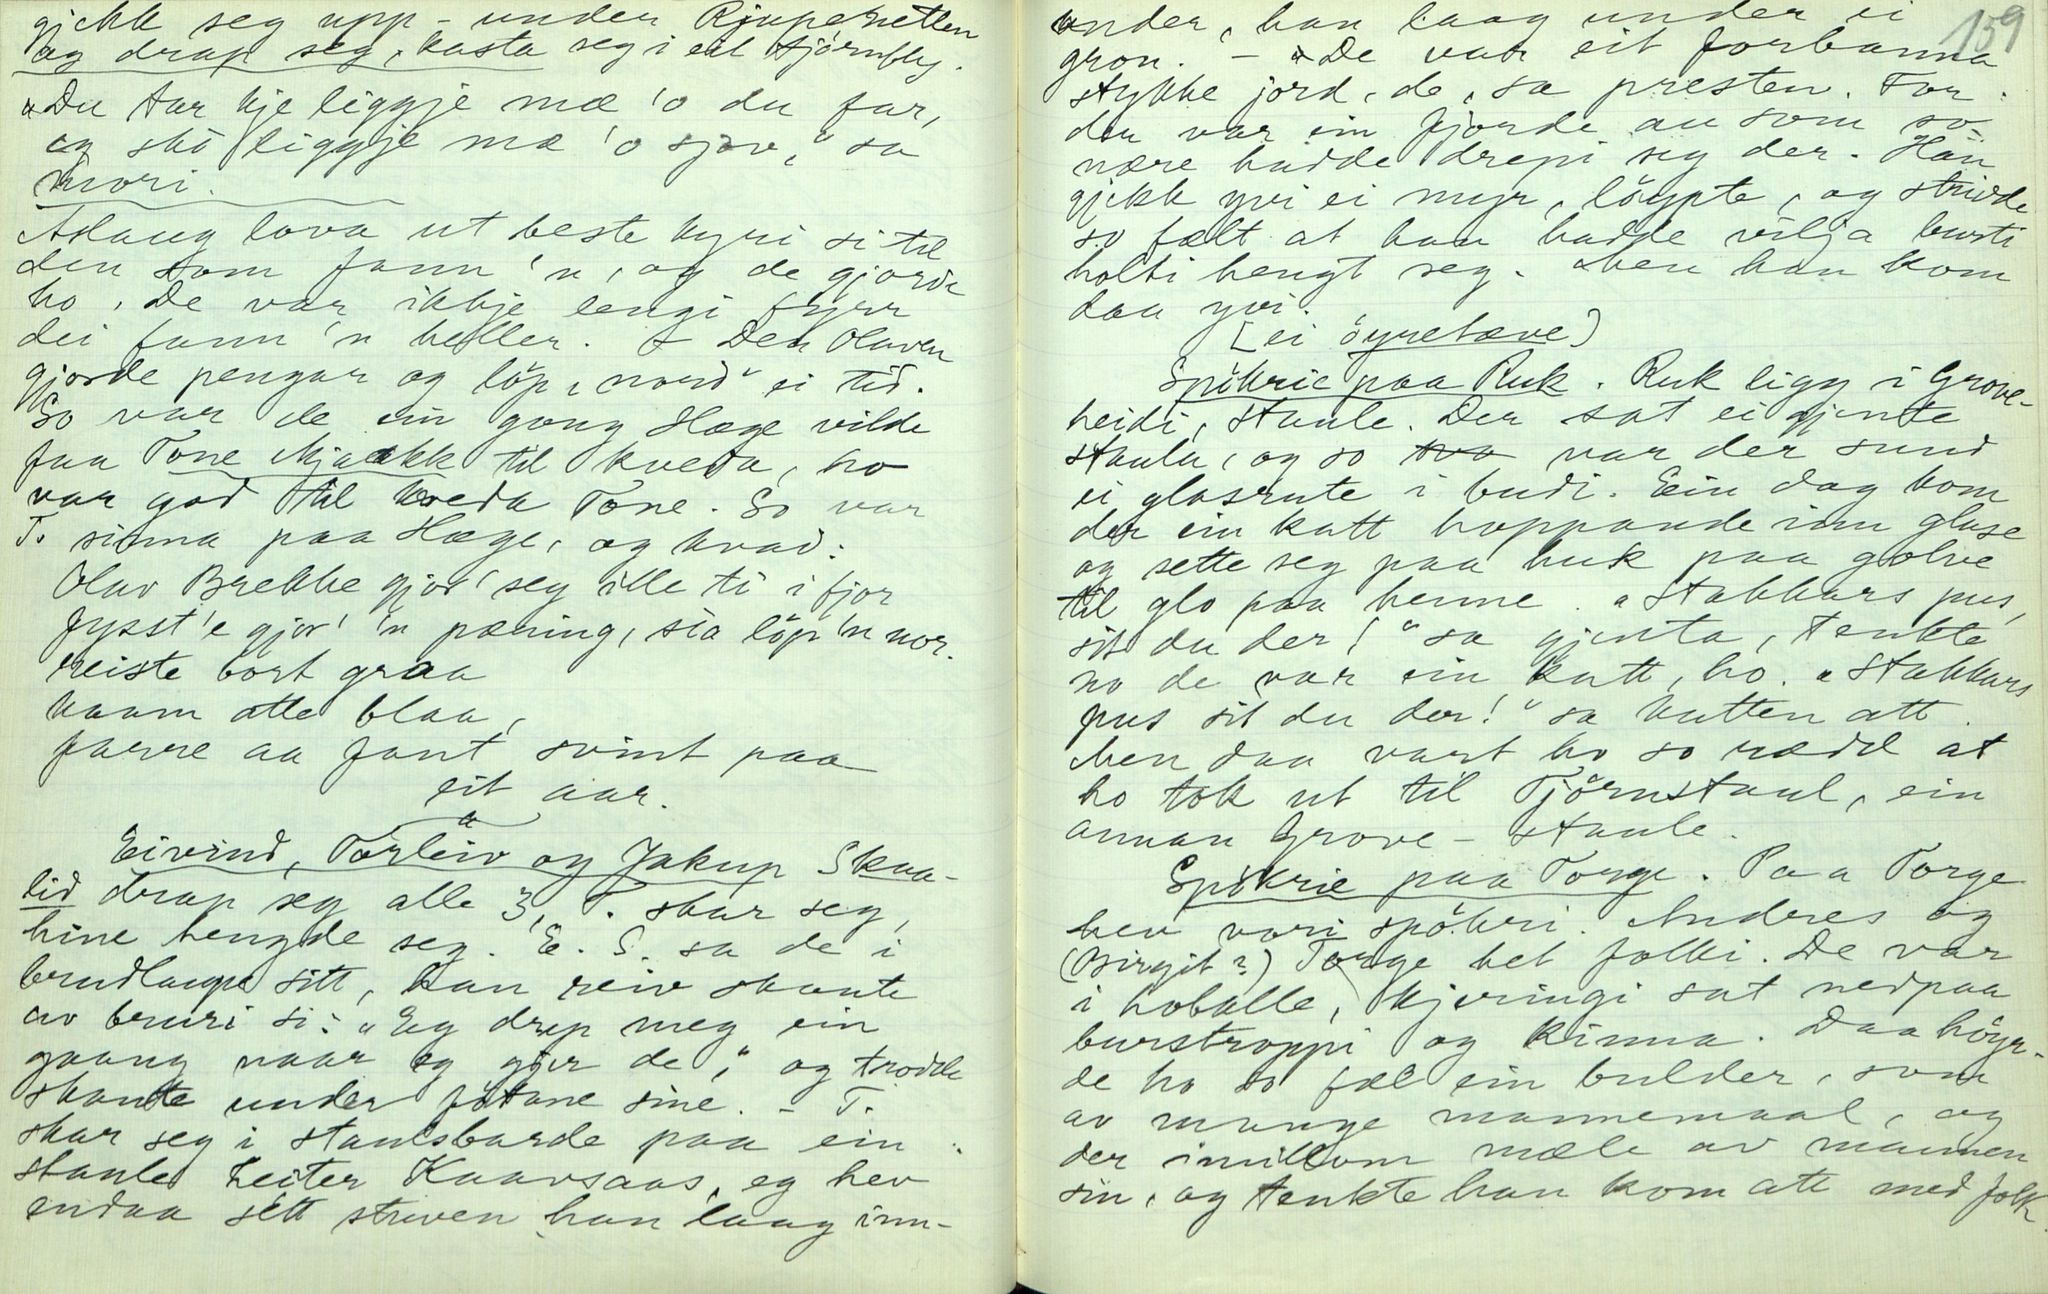 gjekk seg upp - under Rjupenetten
og drap seg, kasta seg i eit tjörnbly.
"Du tar kje liggje mæ 'o du far,
eg ska liggje mæ 'o sjøv," sa
mori.
Aslaug lova ut beste kyri si til
den som fann 'n, og de gjorde
ho. De var ikkje lengi fyrr
dei fann 'n heller. Den Olaven
gjorde pengar og löp "nord" ei tid.
So var de ein gong Hæge vilde
faa Tone Mjaakk til kveda, ho
var god til kveda Tone. So var
T. sinna paa Hæge, og kvad:
Olav Brekke gjor' seg ille ti i fjor
fysst 'e gjor' 'n pæning, sia löp 'n nor.
reiste bort graa
kaam atte blaa,
farre aa fant svint paa
eit aar.
Eivind, Torleiv og Jakup Skaa-
lid drap seg alle 3, T. skar seg,
hine hengde seg. E. S. sa de i
brudlaupe sitt, han reiv skaute
av bruri si: "Eg drep meg ein
gaang naar eg gjer de," og trodde
skaute under fötane sine. - T.
skar seg i staulsbarde paa ein
staule heiter Kaavsaas, eg hev
endaa sett staven han laag inn-
159
under, han laag under ei
gron. - "De var eit forbanna
stykke jord, de, sa presten. For
der var ein fjorde au som so
nære hadde drepi seg der. Han
gjekk yvi ei myr, löypte, og strivde
so fælt at han hadde vilja burti
holti hengt seg. Men han kom
daa yvi.
[ei öyretæve]
Spökrie paa Ruk. Ruk ligg i Grove-
heidi, staule. Der sat ei gjente
staula, og so var der sund
ei glasrute i budi. Ein dag kom
der ein katt hoppande inn glase
og sette seg paa huk paa golve
til glo paa henne. "Stakkars pus,
sit du der!" sa gjenta, tenkte
no de var ein katt, ho. "Stakkars
pus sit du der!" sa katten att.
Men daa vart ho so rædd at
ho tok ut til Tjörnstaul, ein
annan Grove-staule.
Spökrie paa Torge. Paa Torge
hev vori spökri. Anderes og
(Birgit?) Torge het folki. De var
i hoballe, kjeringi sat nedpaa
burstroppi og kinna. Daa höyr-
de ho so fæl ein bulder, som
av mange mannemaal, og
der imillom mæle av mannen
sin, og tenkte han kom att med folk.